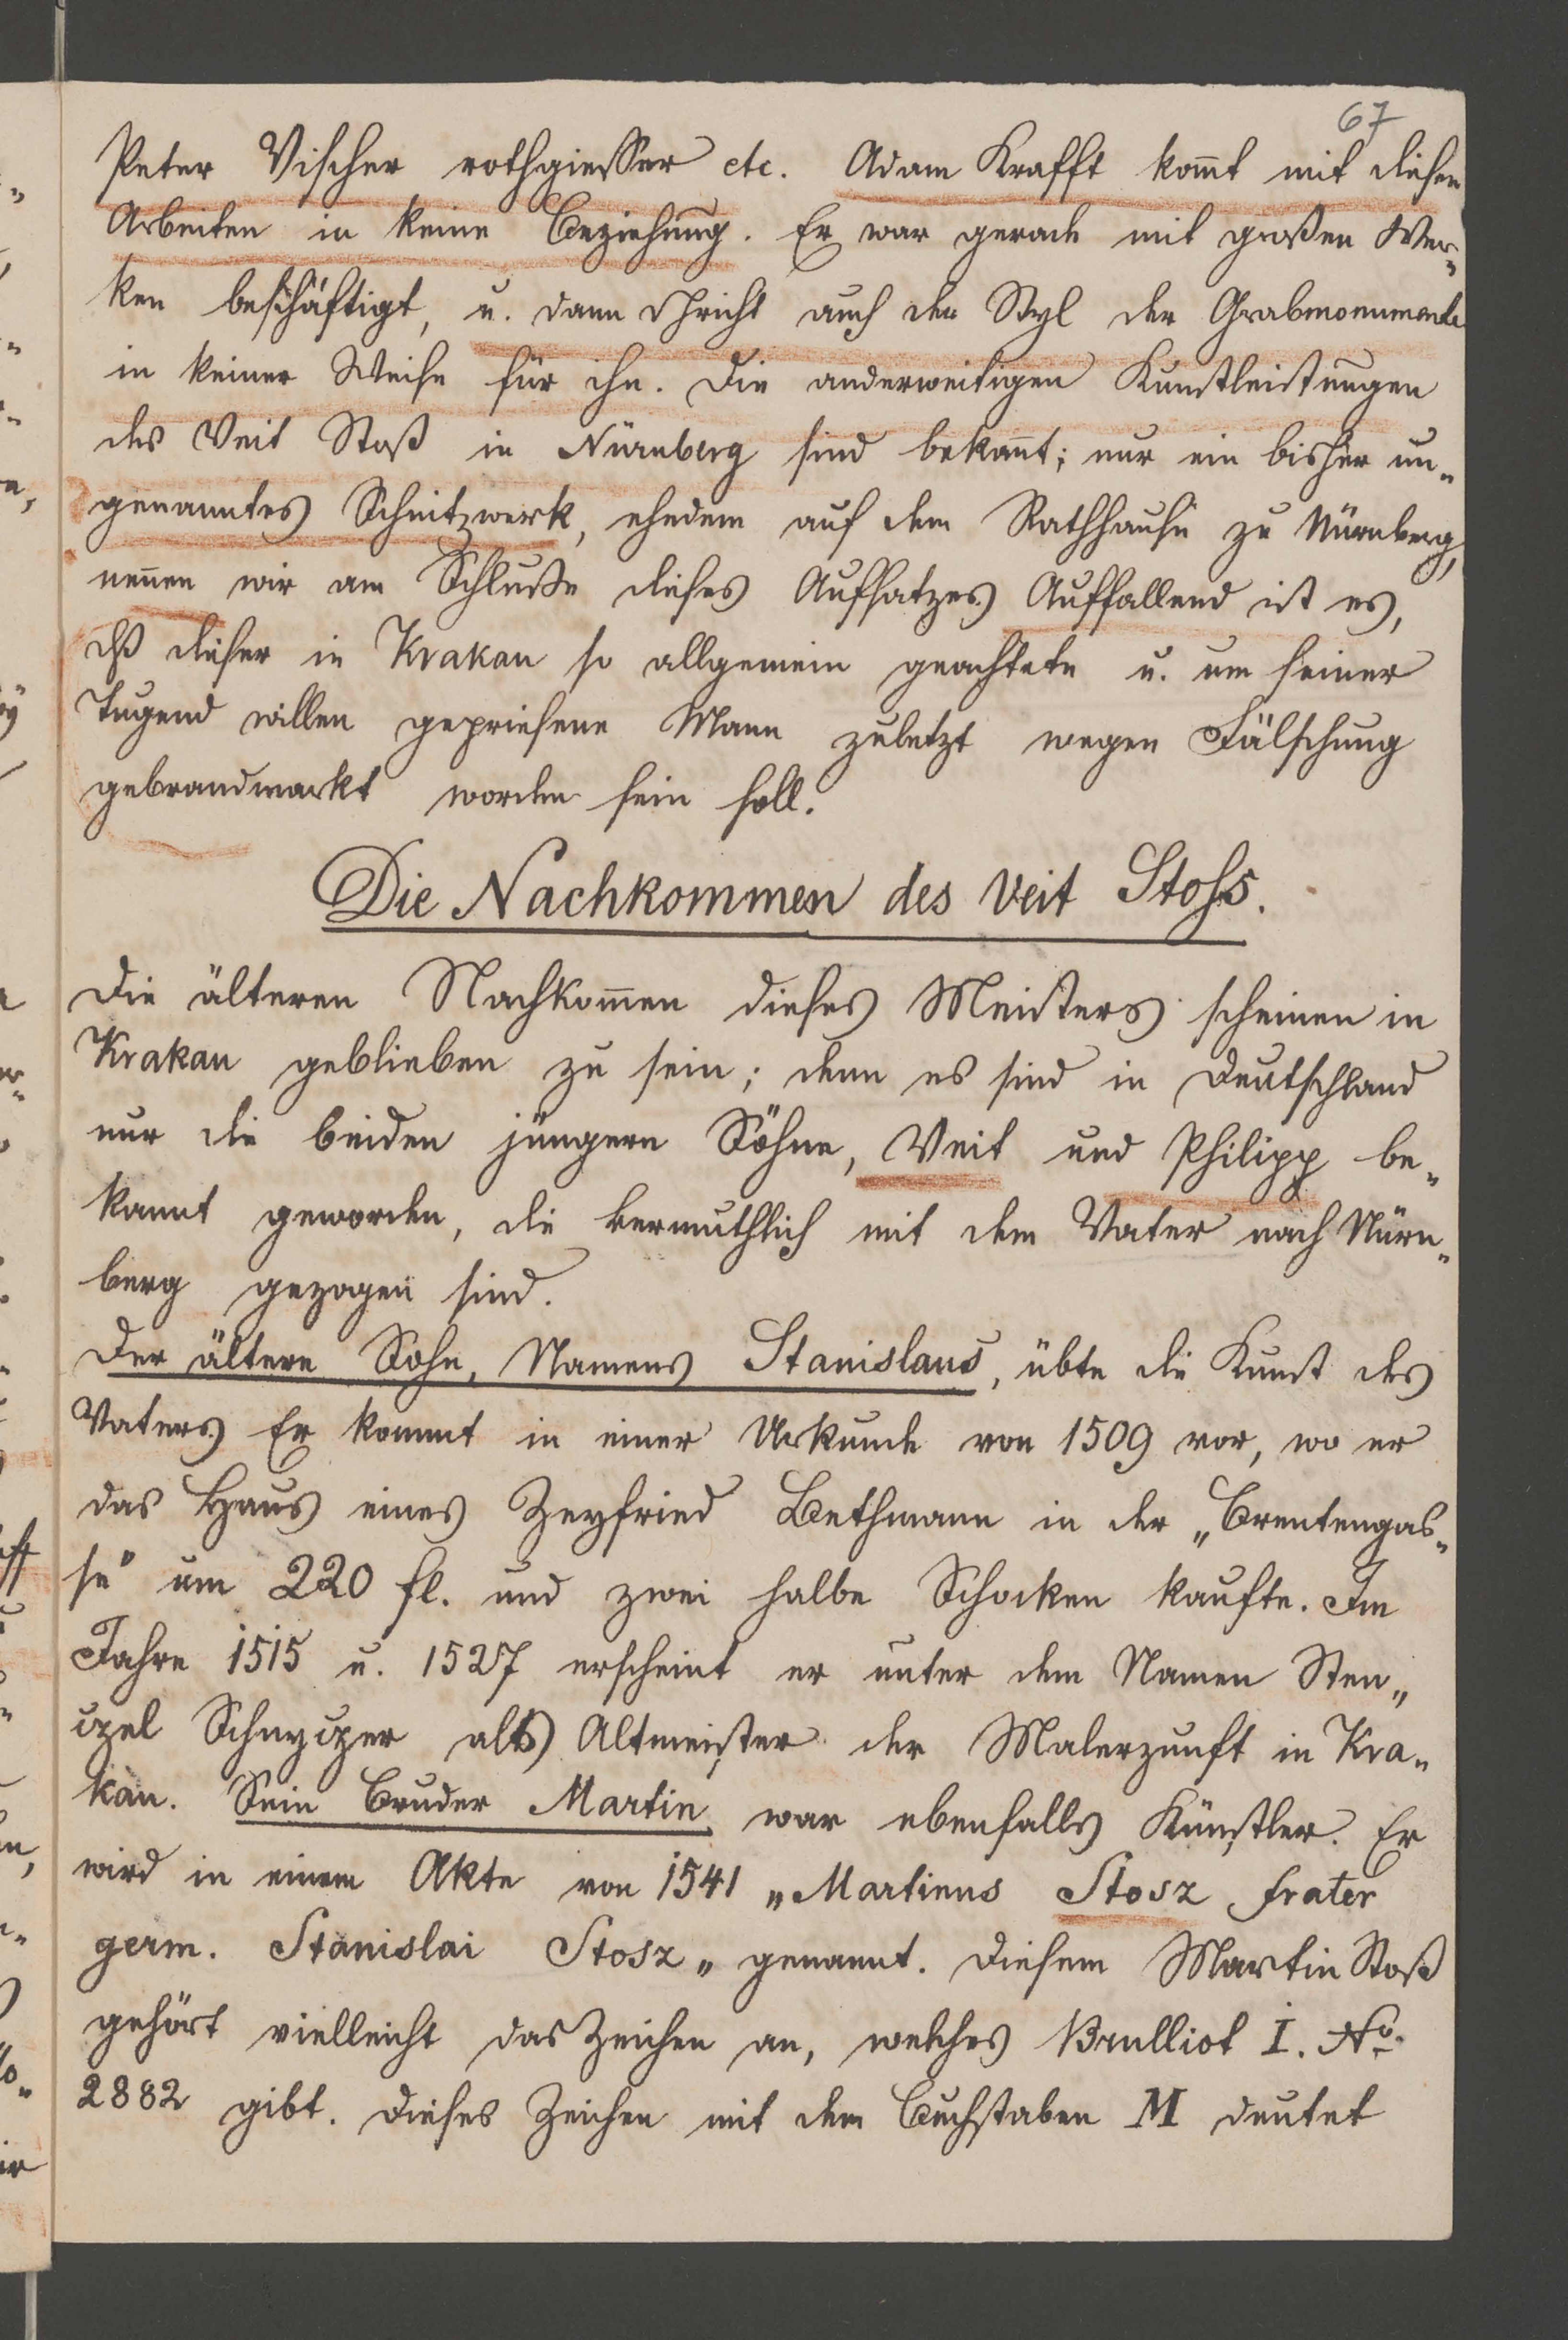 67
Peter Vischer rothgiesser etc. Adam Krafft kom̄t mit diesen
Arbeiten in keine Beziehung. Er war gerade mit großen Wer„
ken beschäftigt, u. dann spricht auch der Styl der Grabmonumente
in keiner Weise für ihn. Die anderweitigen Kunstleistungen
des Veit Stoß in Nürnberg sind bekan̄t; nur ein bisher un„
genanntes Schnitzwerk, ehedem auf dem Rathhause zu Nürnberg,
nen̄en wir am Schluße dieses Aufsatzes. Auffallend ist es,
dß dieser in Krakau so allgemein geachtete u. um seiner
Tugend willen gepriesene Mann zuletzt wegen Fälschung
gebrandmarkt worden sein soll.
Die Nachkommen des Veit Stoss.
Die älteren Nachkom̄en dieses Meisters scheinen in
Krakau geblieben zu sein; denn es sind in Deutschland
nur die beiden jüngern Söhne, Veit und Philipp be„
kannt geworden, die vermuthlich mit dem Vater nach Nürn„
berg gezogen sind.
Der ältere Sohn, Namens Stanislaus, übte die Kunst des
Vaters. Er kommt in einer Urkunde von 1509 vor, wo er
das Haus eines Zeyfried Bethmann in der „Brentengas„
se" um 220 fl. und zwei halbe Schocken kaufte. Im
Jahre 1515 u. 1527 erscheint er unter dem Namen Sten„
czel Schnyczer als Altmeister der Malerzunft in Kra„
kau. Sein Bruder Martin war ebenfalls Künstler. Er
wird in einem Akte von 1541 „Martinus Stosz frater
germ. Stanislai Stosz„ genannt. Diesem Martin Stoß
gehört vielleicht das Zeichen an, welches Brulliot I. No.
2882 gibt. Dieses Zeichen mit dem Buchstaben M deutet